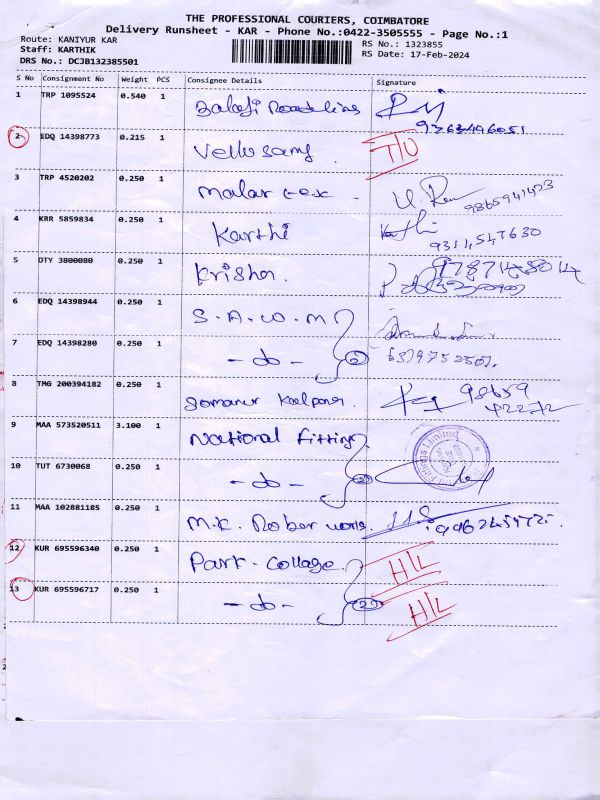 THE PROFESSIONAL COURIERS, COIMBATORE
Delivery Runsheet - KAR - Phone No.:0422-3505555 - Page No.:1
Route: KANIYUR KAR
Staff: KARTHIK
DRS No.: DCJB132385501
RS No.: 1323855
RS Date: 17-Feb-2024
S No Consignment No Weight PCS Consignee Details Signature
1 TRP 1095524 0.540 1 Balaji Roadlines
9363496051
2 EDQ 14398773 0.215 1 Vellusamy
3 TRP 4520202 0.250 1 Malar tex
9865941423
4 KRR 5859834 0.250 1 Karthi
5 DTY 3800080 0.250 1 Krisha
6 EDQ 14398944 0.250 1 S.A.W.M
7 EDQ 14398280 0.250 1 -do- 2
8 TMG 200394182 0.250 1 Somanur Kalpana
98659
42272
9 MAA 573520511 3.100 1 National Fitting
Fittings Limited
10 TUT 6730068 0.250 1 -do- 2
11 MAA 102881185 0.250 1 M.K. Rober works
12 KUR 695596340 0.250 1 Park. Collage H/L
13 KUR 695596717 0.250 1 -do- 2 H/L